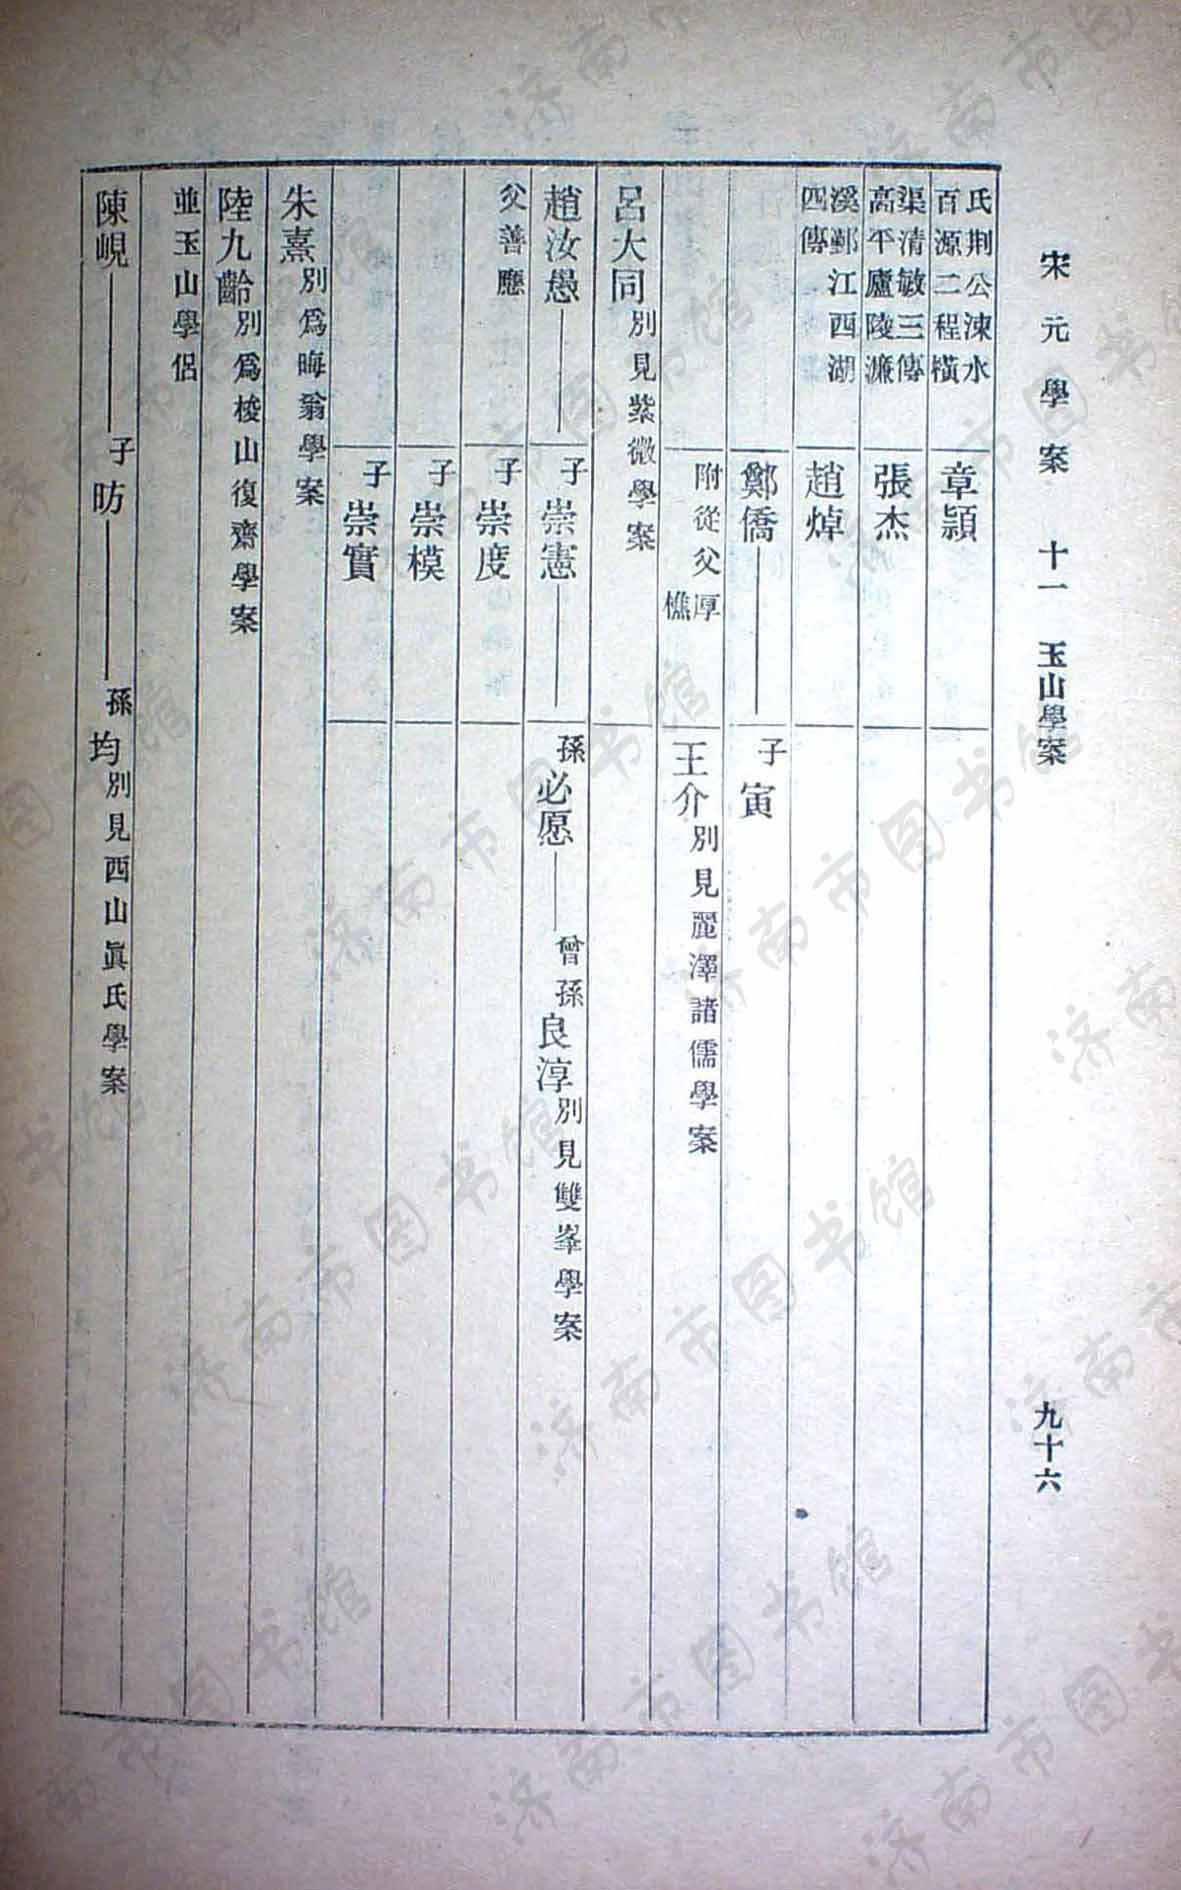 宋元學案 十一 玉山學案 九十六
氏荆公涑水
百源二程橫 章穎
渠清敏三傳
高平廬陵濂 張杰
溪鄞江西湖
四傳 趙焯
鄭僑 子寅
附從父厚
樵 王介別見麗澤諸儒學案
呂大同別見紫微學案
趙汝愚 子崇憲 孫必愿 曾孫良淳別見雙峯學案
父善應 子崇度
子崇模
子崇實
朱熹別爲晦翁學案
陸九齡別爲梭山復齋學案
並玉山學侶
陳峴 子昉 孫均別見西山眞氏學案
济南市图书馆